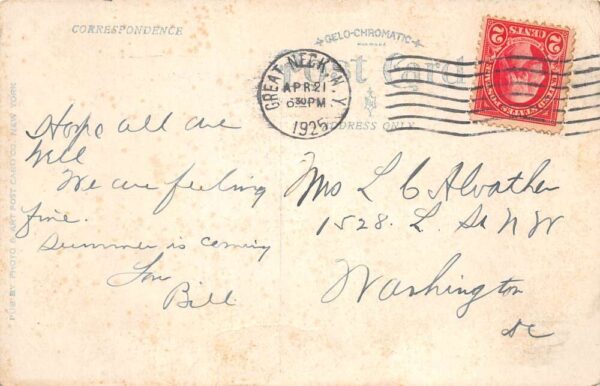 CORRESPONDENCE
GELO-CHROMATIC
Post Card
ADDRESS ONLY
GREAT NECK, N.Y.
APR 21
6 30 PM
1925
2 CENTS 2
UNITED STATES POSTAGE
PUB. BY PHOTO & ART POST CARD CO. NEW YORK
Hope all are
well
We are feeling
fine.
Summer is coming
Lou
Bill
Mrs L C Alvather
1528. L. St N W
Washington
DC